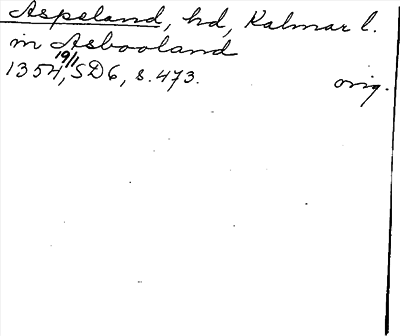 Aspeland, hd, Kalmar l.
in Asbooland
19/1
1354, SD6, s. 473. orig.